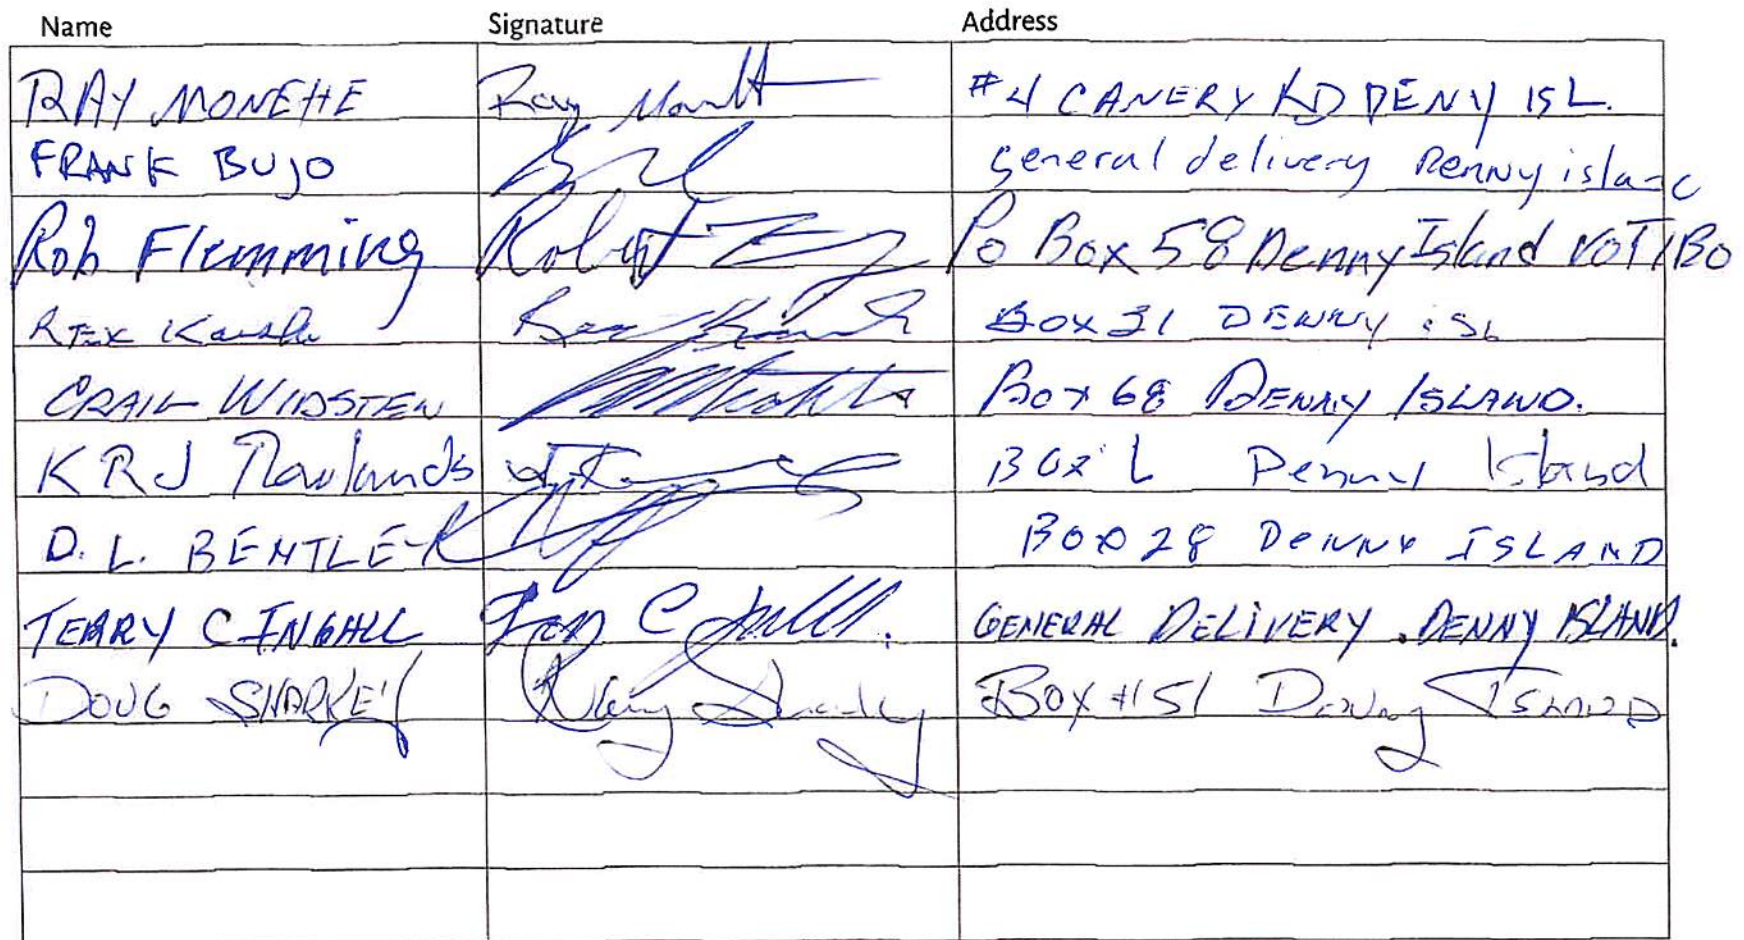 Name Signature Address
RAY MONETTE Ray #4 CANERY RD DENY ISL.
FRANK BUJO general delivery Denny island
Rob Flemming Robert Po Box 58 Denny Island V0T1B0
REX Box 31 DENNY ISL
CRAIG WIDSTEN Box 68 DENNY ISLAND.
KRJ Rowlands Box L Denny Island
D. L. BENTLEY Box 28 DENNY ISLAND
TERRY C INGHLL Terry C GENERAL DELIVERY. DENNY ISLAND.
DOUG SHARKEY Sharkey BOX #151 Denny ISLAND